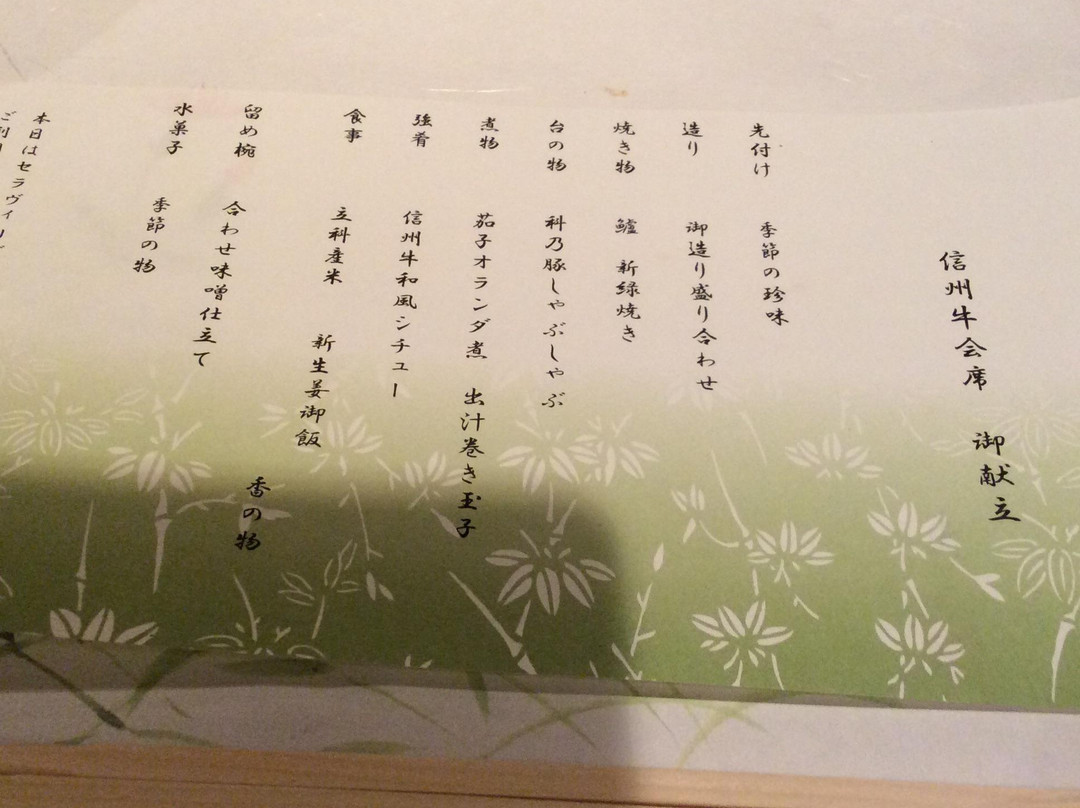 信州牛会席 御献立
先付け 季節の珍味
造り 御造り盛り合わせ
焼き物 鱸 新緑焼き
台の物 科乃豚しゃぶしゃぶ
煮物 茄子オランダ煮 出汁巻き玉子
強肴 信州牛和風シチュー
食事 立科産米 新生姜御飯
留め椀 合わせ味噌仕立て 香の物
水菓子 季節の物
本日はセラヴィ